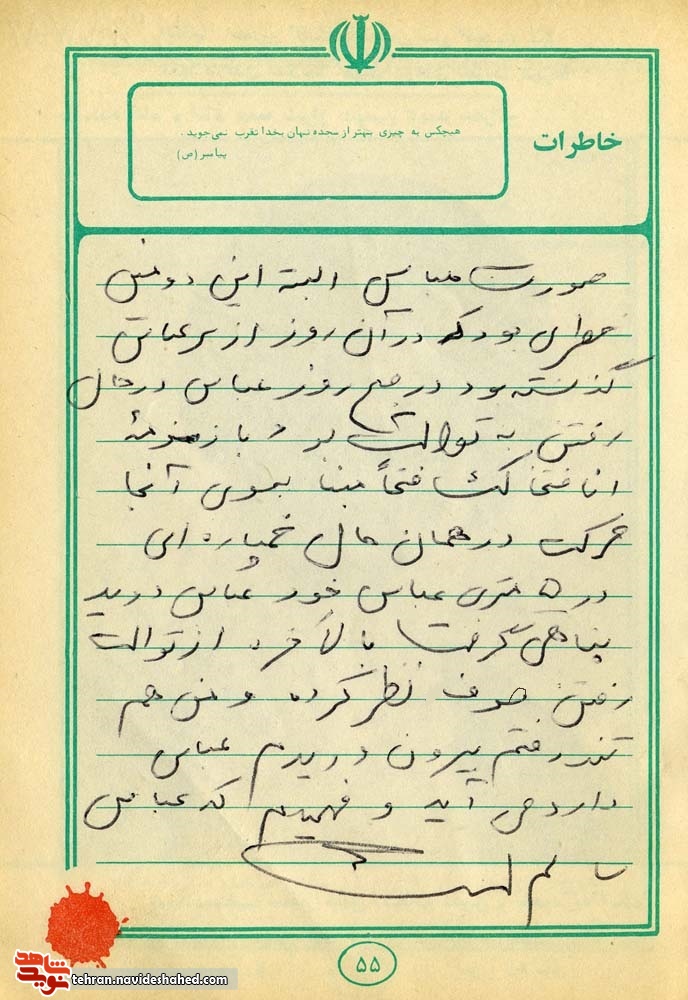 خاطرات
هیچکس به چیزی بهتر از سجده نهان بخدا تقرب نمی‌جوید.
پیامبر (ص)
صورت عباس البته این دومین
خطری بود که در آن روز از سر عباس
گذشته بود در صبح روز عباس در حال
رفتن به توالت بود و با زمزمهٔ
انا فتحنا لک فتحاً مبینا بسوی آنجا
حرکت در همان حال خمپاره‌ای
در ۵ متری عباس خورد عباس دوید
پناهی گرفت بالاخره از توالت
رفتن صرف نظر کرده و من هم
تند رفتم بیرون و دیدم عباس
دارد می آید و فهمیدم که عباس
سالم است
۵۵
نوید شاهد
tehran.navideshahed.com